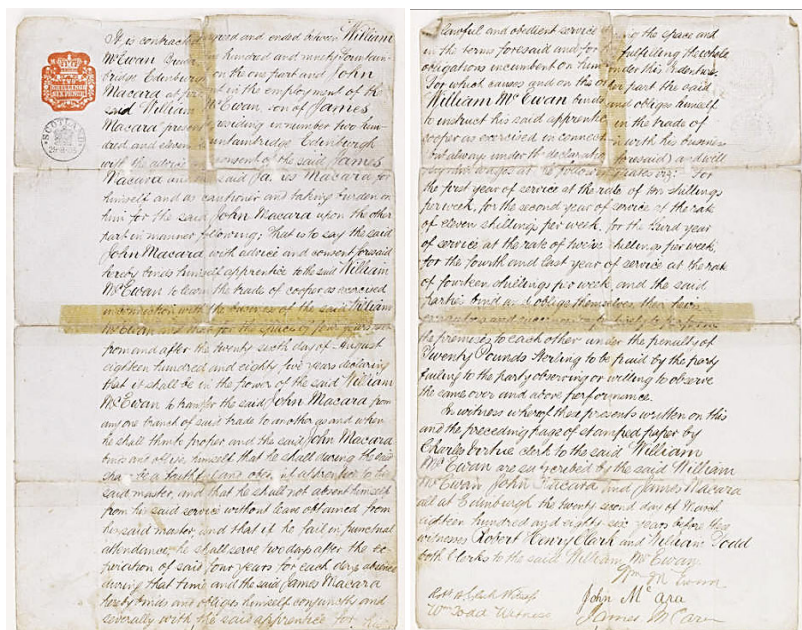 It is contracted agreed and ended between William
McEwan Brewer hundred and ninety Fountain
bridge Edinburgh on the one part and John
Macara at present in the employment of the
said William McEwan, son of James
Macara present residing in number two hun
dred and eleven Fountainbridge Edinburgh
with the advice consent of the said James
Macara and the said James Macara for
himself and as cautioner and taking burden on
him for the said John Macara upon the other
part in manner following; That is to say the said
John Macara with advice and consent foresaid
hereby binds himself apprentice to the said William
McEwan to learn the trade of cooper as exercised
in connection with the business of the said William
McEwan and that for the space of four years
from and after the twenty sixth day of August
eighteen hundred and eighty five years declaring
that it shall be in the power of the said William
McEwan to transfer the said John Macara from
any one branch of said trade to another as and when
he shall think proper and the said John Macara
binds and obliges himself that he shall during the said
shall be a faithful and obedient apprentice to his
said master, and that he shall not absent himself
from his said service without leave obtained from
his said master, and that if he fail in punctual
attendance, he shall serve two days after the ex
piration of said four years for each day's absence
during that time and the said James Macara
hereby binds and obliges himself conjunctly and
severally with the said apprentice for
lawful and obedient service during the space and
in the terms foresaid and for fulfilling the whole
obligations incumbent on him under this Indenture.
For which causes and on the other part the said
William McEwan binds and obliges himself
to instruct his said apprentice in the trade of
cooper as exercised in connection with his business
but always under the declaration foresaid and will
pay him wages at the following rates viz: For
the first year of service at the rate of ten shillings
per week, for the second year of service at the rate
of eleven shillings per week, for the third year
of service at the rate of twelve shillings per week
for the fourth and last year of service at the rate
of fourteen shillings per week and the said
parties bind and oblige themselves their heirs
executors and successors to perform
the premises to each other under the penalty of
Twenty Pounds Sterling to be paid by the party
failing to the party observing or willing to observe
the same over and above performance.
In witness whereof these presents written on this
and the preceding page of stamped paper by
Charles Virtue clerk to the said William
McEwan are subscribed by the said William
McEwan John Macara and James Macara
all at Edinburgh the twenty second day of March
eighteen hundred and eighty six years before these
witnesses Robert Henry Clark and William Todd
both Clerks to the said William McEwan.
Wm McEwan
Robt H Clark Witness John McAra
Wm Todd Witness James McAra